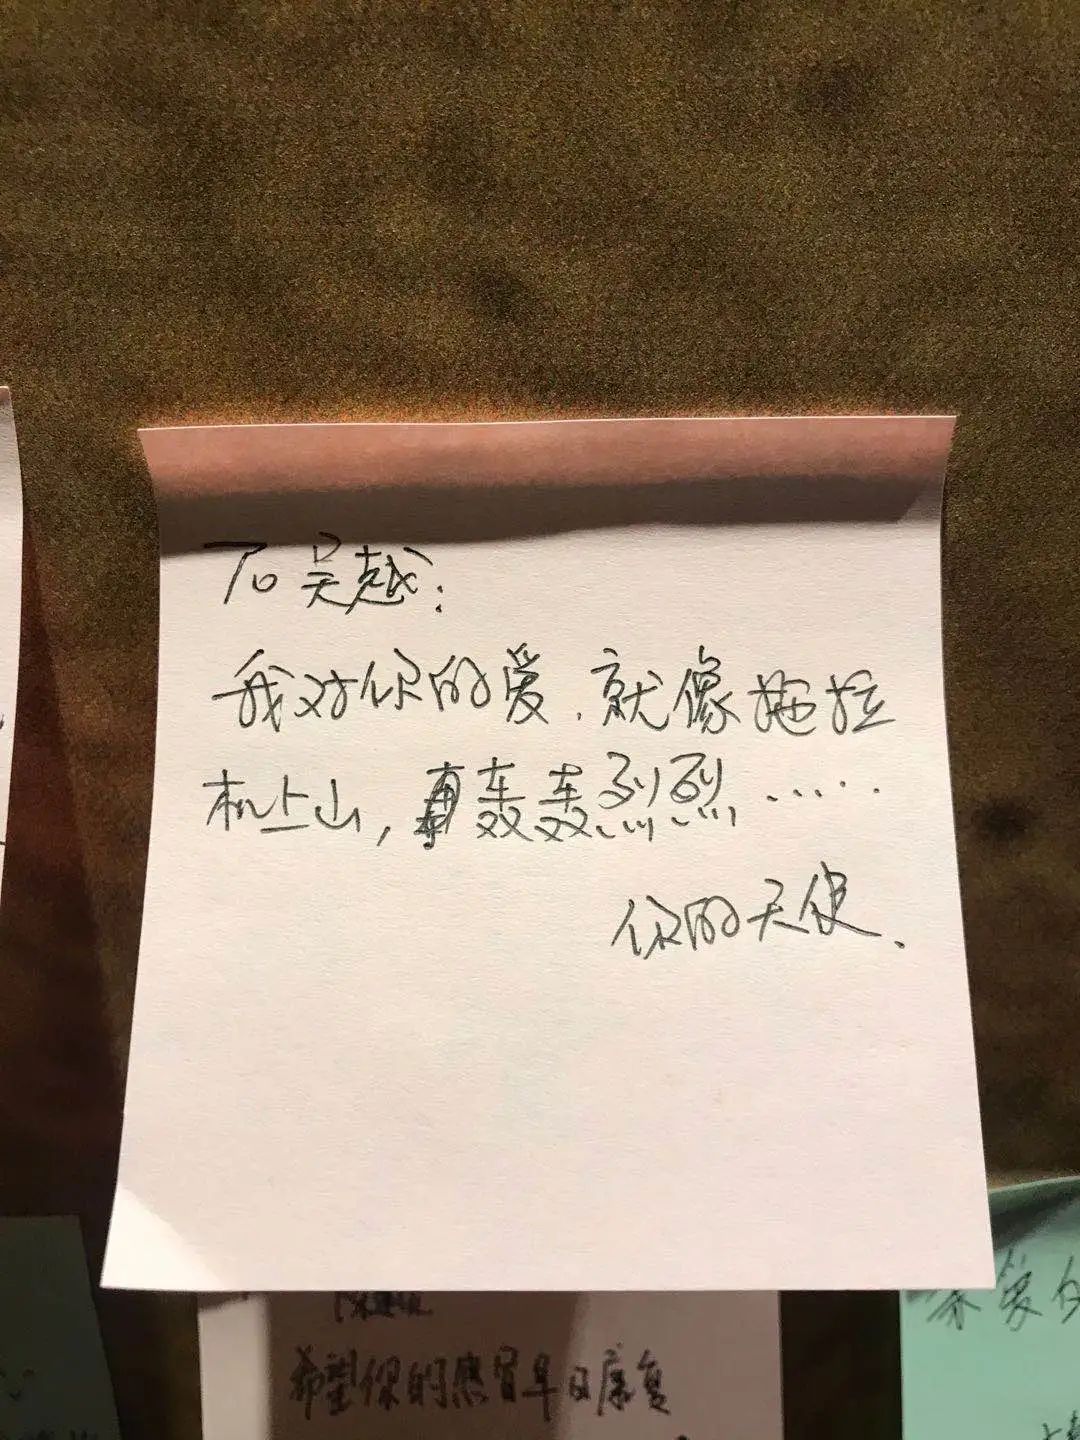 To 吴越:
我对你的爱.就像拖拉
机上山,轰轰烈烈......
你的天使.
希望你的感冒早日康复